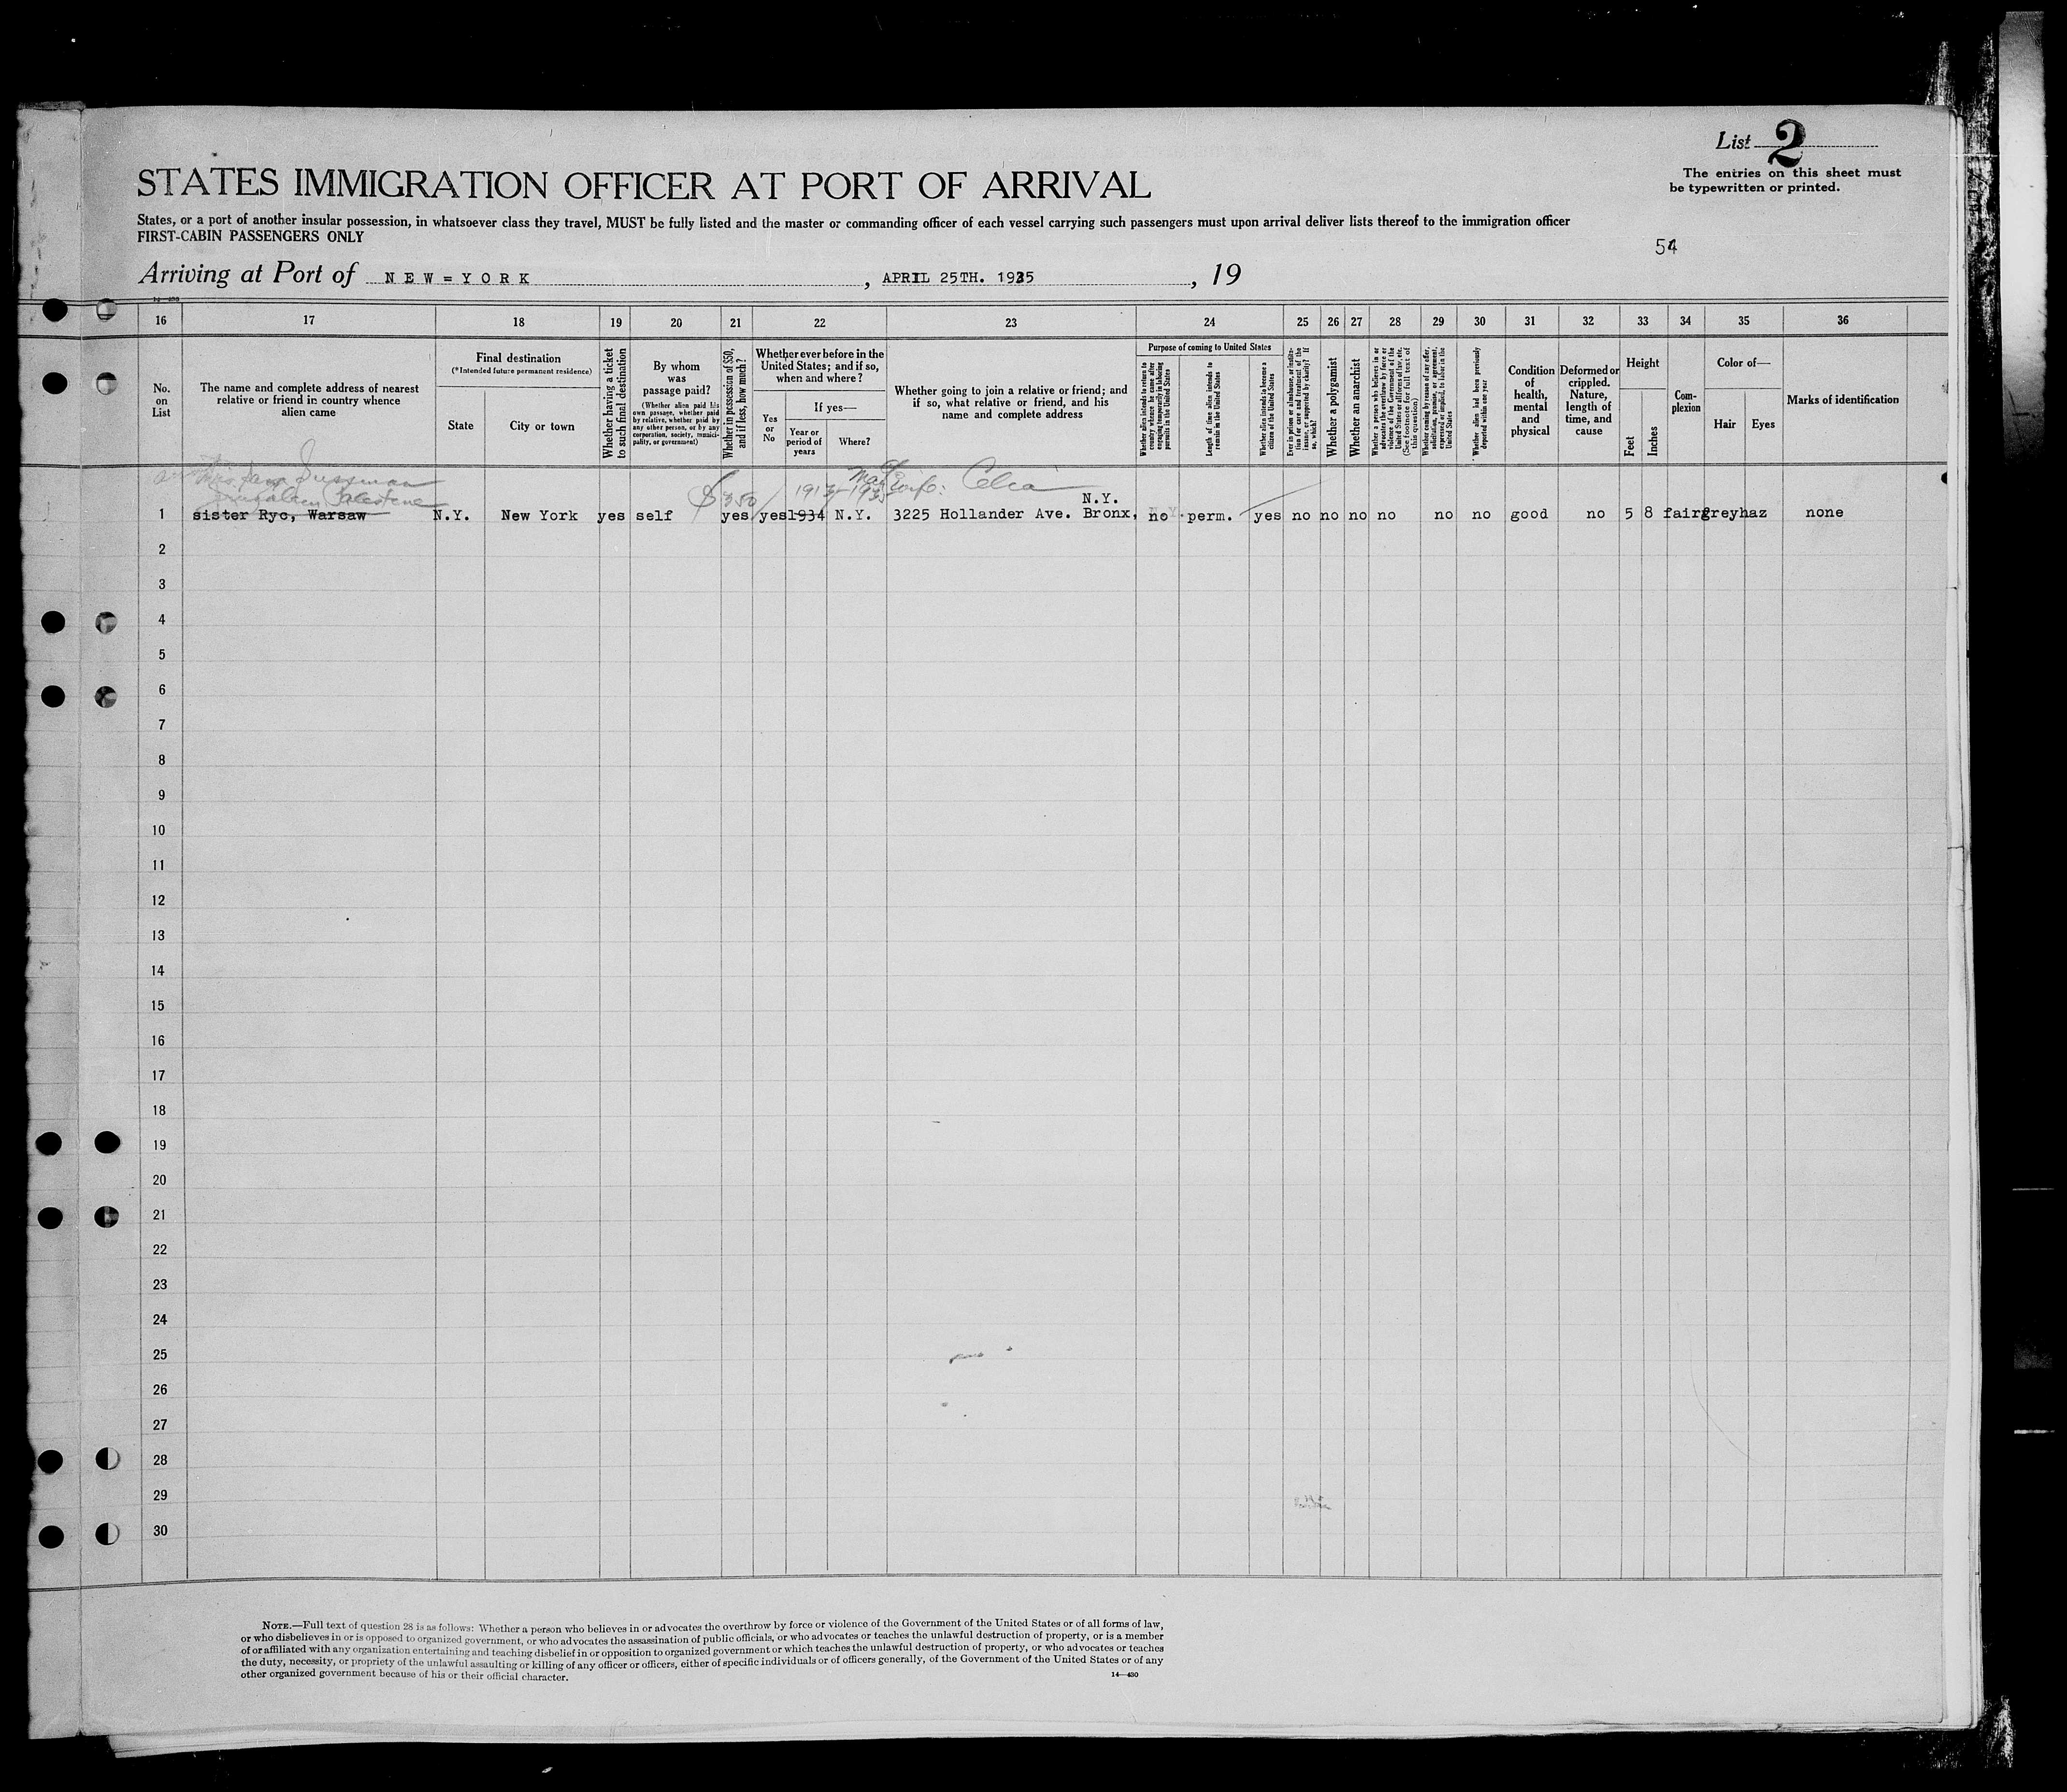 List 2
The entries on this sheet must
be typewritten or printed.
STATES IMMIGRATION OFFICER AT PORT OF ARRIVAL
States, or a port of another insular possession, in whatsoever class they travel, MUST be fully listed and the master or commanding officer of each vessel carrying such passengers must upon arrival deliver lists thereof to the immigration officer
FIRST-CABIN PASSENGERS ONLY
54
Arriving at Port of NEW=YORK, APRIL 25TH. 1935, 19
14—430
16 17 18 19 20 21 22 23 24 25 26 27 28 29 30 31 32 33 34 35 36
No.
on
List
The name and complete address of nearest
relative or friend in country whence
alien came
Final destination
(*Intended future permanent residence)
State
City or town
Whether having a ticket
to such final destination
By whom
was
passage paid?
(Whether alien paid his
own passage, whether paid
by relative, whether paid by
any other person, or by any
corporation, society, munici-
pality, or government)
Whether in possession of $50,
and if less, how much?
Whether ever before in the
United States; and if so,
when and where?
Yes
or
No
If yes—
Year or
period of
years
Where?
Whether going to join a relative or friend; and
if so, what relative or friend, and his
name and complete address
Purpose of coming to United States
Whether alien intends to return to
country whence he came after
engaging temporarily in laboring
pursuits in the United States
Length of time alien intends to
remain in the United States
Whether alien intends to become a
citizen of the United States
Ever in prison or almshouse, or institu-
tion for care and treatment of the
insane, or supported by charity? If
so, which?
Whether a polygamist
Whether an anarchist
Whether a person who believes in or
advocates the overthrow by force or
violence of the Government of the
United States or all forms of law, etc.
(See footnote for full text of
this question)
Whether coming by reason of any offer,
solicitation, promise, or agreement,
expressed or implied, to labor in the
United States
Whether alien had been previously
deported within one year
Condition
of
health,
mental
and
physical
Deformed or
crippled.
Nature,
length of
time, and
cause
Height
Feet
Inches
Com-
plexion
Color of—
Hair
Eyes
Marks of identification
Sussman
Palestine
$350
1913-1935
Celia
N.Y.
1 sister Ryc, Warsaw N.Y. New York yes self yes yes 1934 N.Y. 3225 Hollander Ave. Bronx, no perm. yes no no no no no no good no 5 8 fair grey haz none
2
3
4
5
6
7
8
9
10
11
12
13
14
15
16
17
18
19
20
21
22
23
24
25
26
27
28
29
30
NOTE.—Full text of question 28 is as follows: Whether a person who believes in or advocates the overthrow by force or violence of the Government of the United States or of all forms of law,
or who disbelieves in or is opposed to organized government, or who advocates the assassination of public officials, or who advocates or teaches the unlawful destruction of property, or is a member
of or affiliated with any organization entertaining and teaching disbelief in or opposition to organized government or which teaches the unlawful destruction of property, or who advocates or teaches
the duty, necessity, or propriety of the unlawful assaulting or killing of any officer or officers, either of specific individuals or of officers generally, of the Government of the United States or of any
other organized government because of his or their official character.
14—430